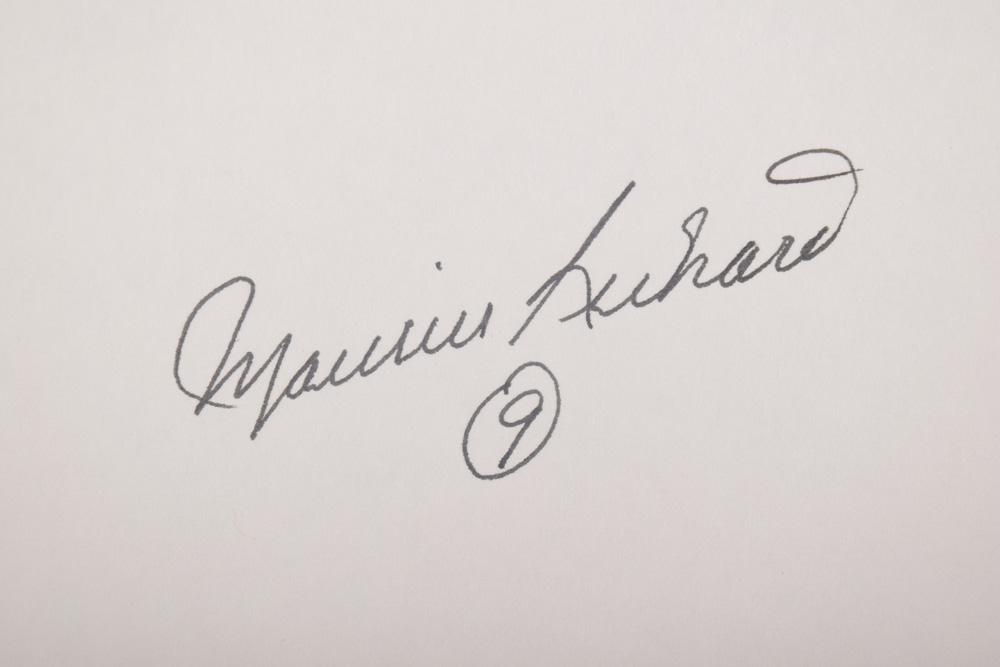 Maurice Richard
9